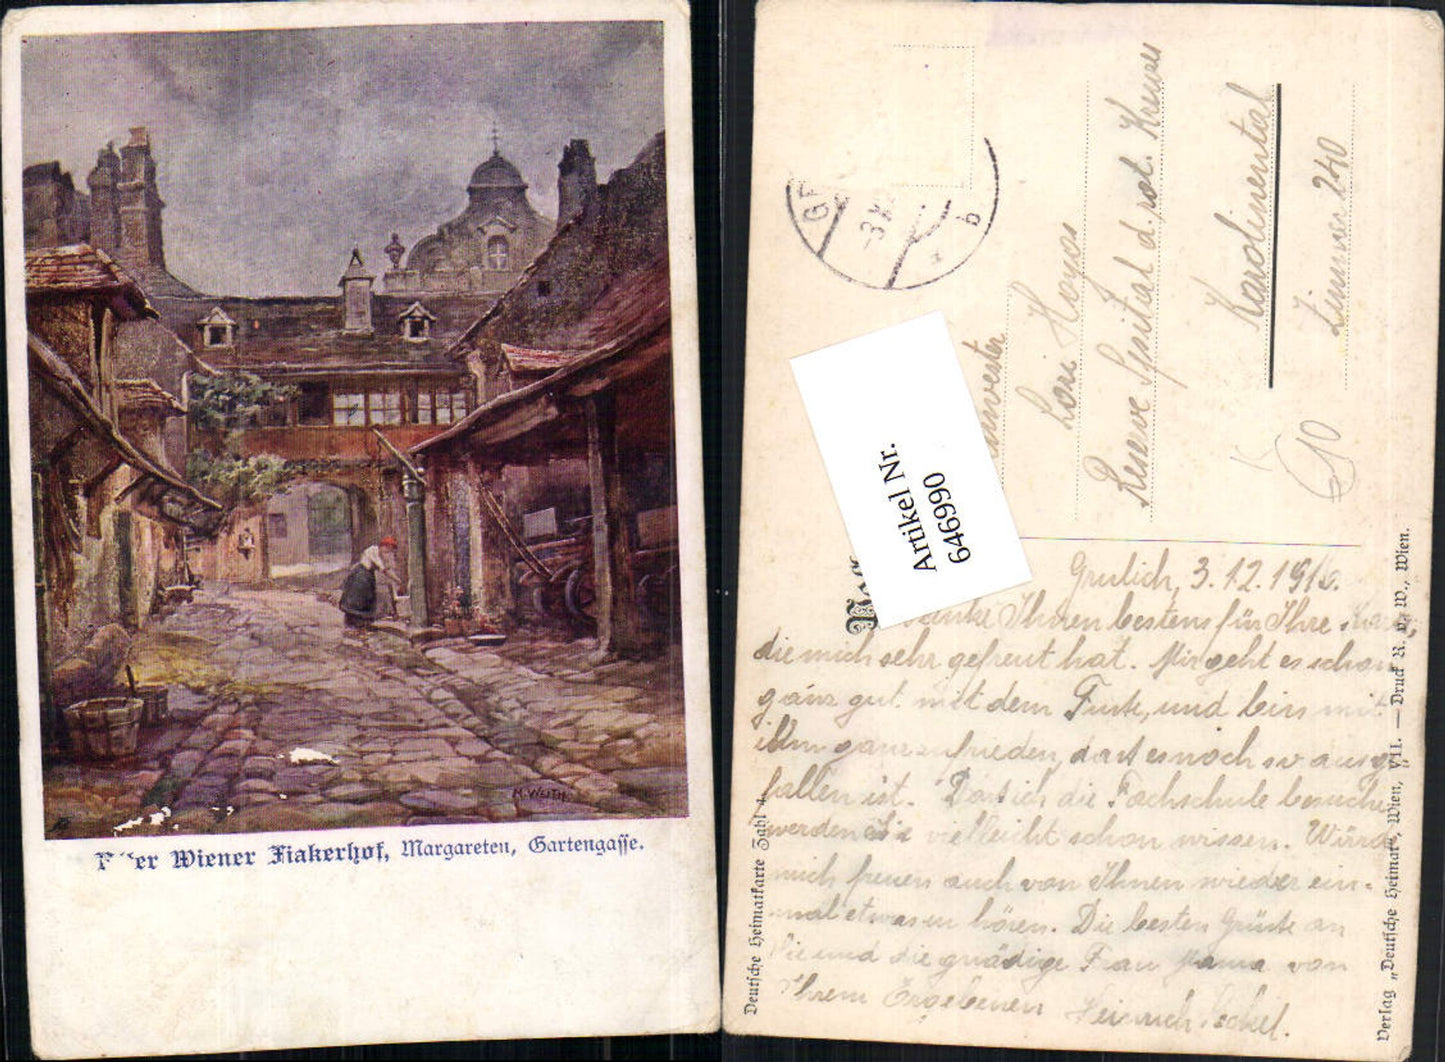 M. Weith
er Wiener Fiakerhof, Margareten, Gartengasse.
- 3
b
Artikel Nr.
646990
Lori Hoyos
Reserve Spital d. rot. Kreuzes
Karolinental
Zimmer 240
Grulich, 3.12.1916.
danke Ihnen bestens für Ihre
die mich sehr gefreut hat. Mir geht es schon
ganz gut mit dem Fuße, und bin mit
ihm ganz zufrieden, daß es noch so ausge
fallen ist. Daß ich die Fachschule besuche
werden Sie vielleicht schon wissen. Würde
mich freuen auch von Ihnen wieder ein-
mal etwas zu hören. Die besten Grüße an
Sie und die gnädige Frau Mama von
Ihrem Ergebenen Heinrich
Deutsche Heimatkarte Zahl 4
Verlag „Deutsche Heimat“, Wien, VII. — Druck R. v. W., Wien.